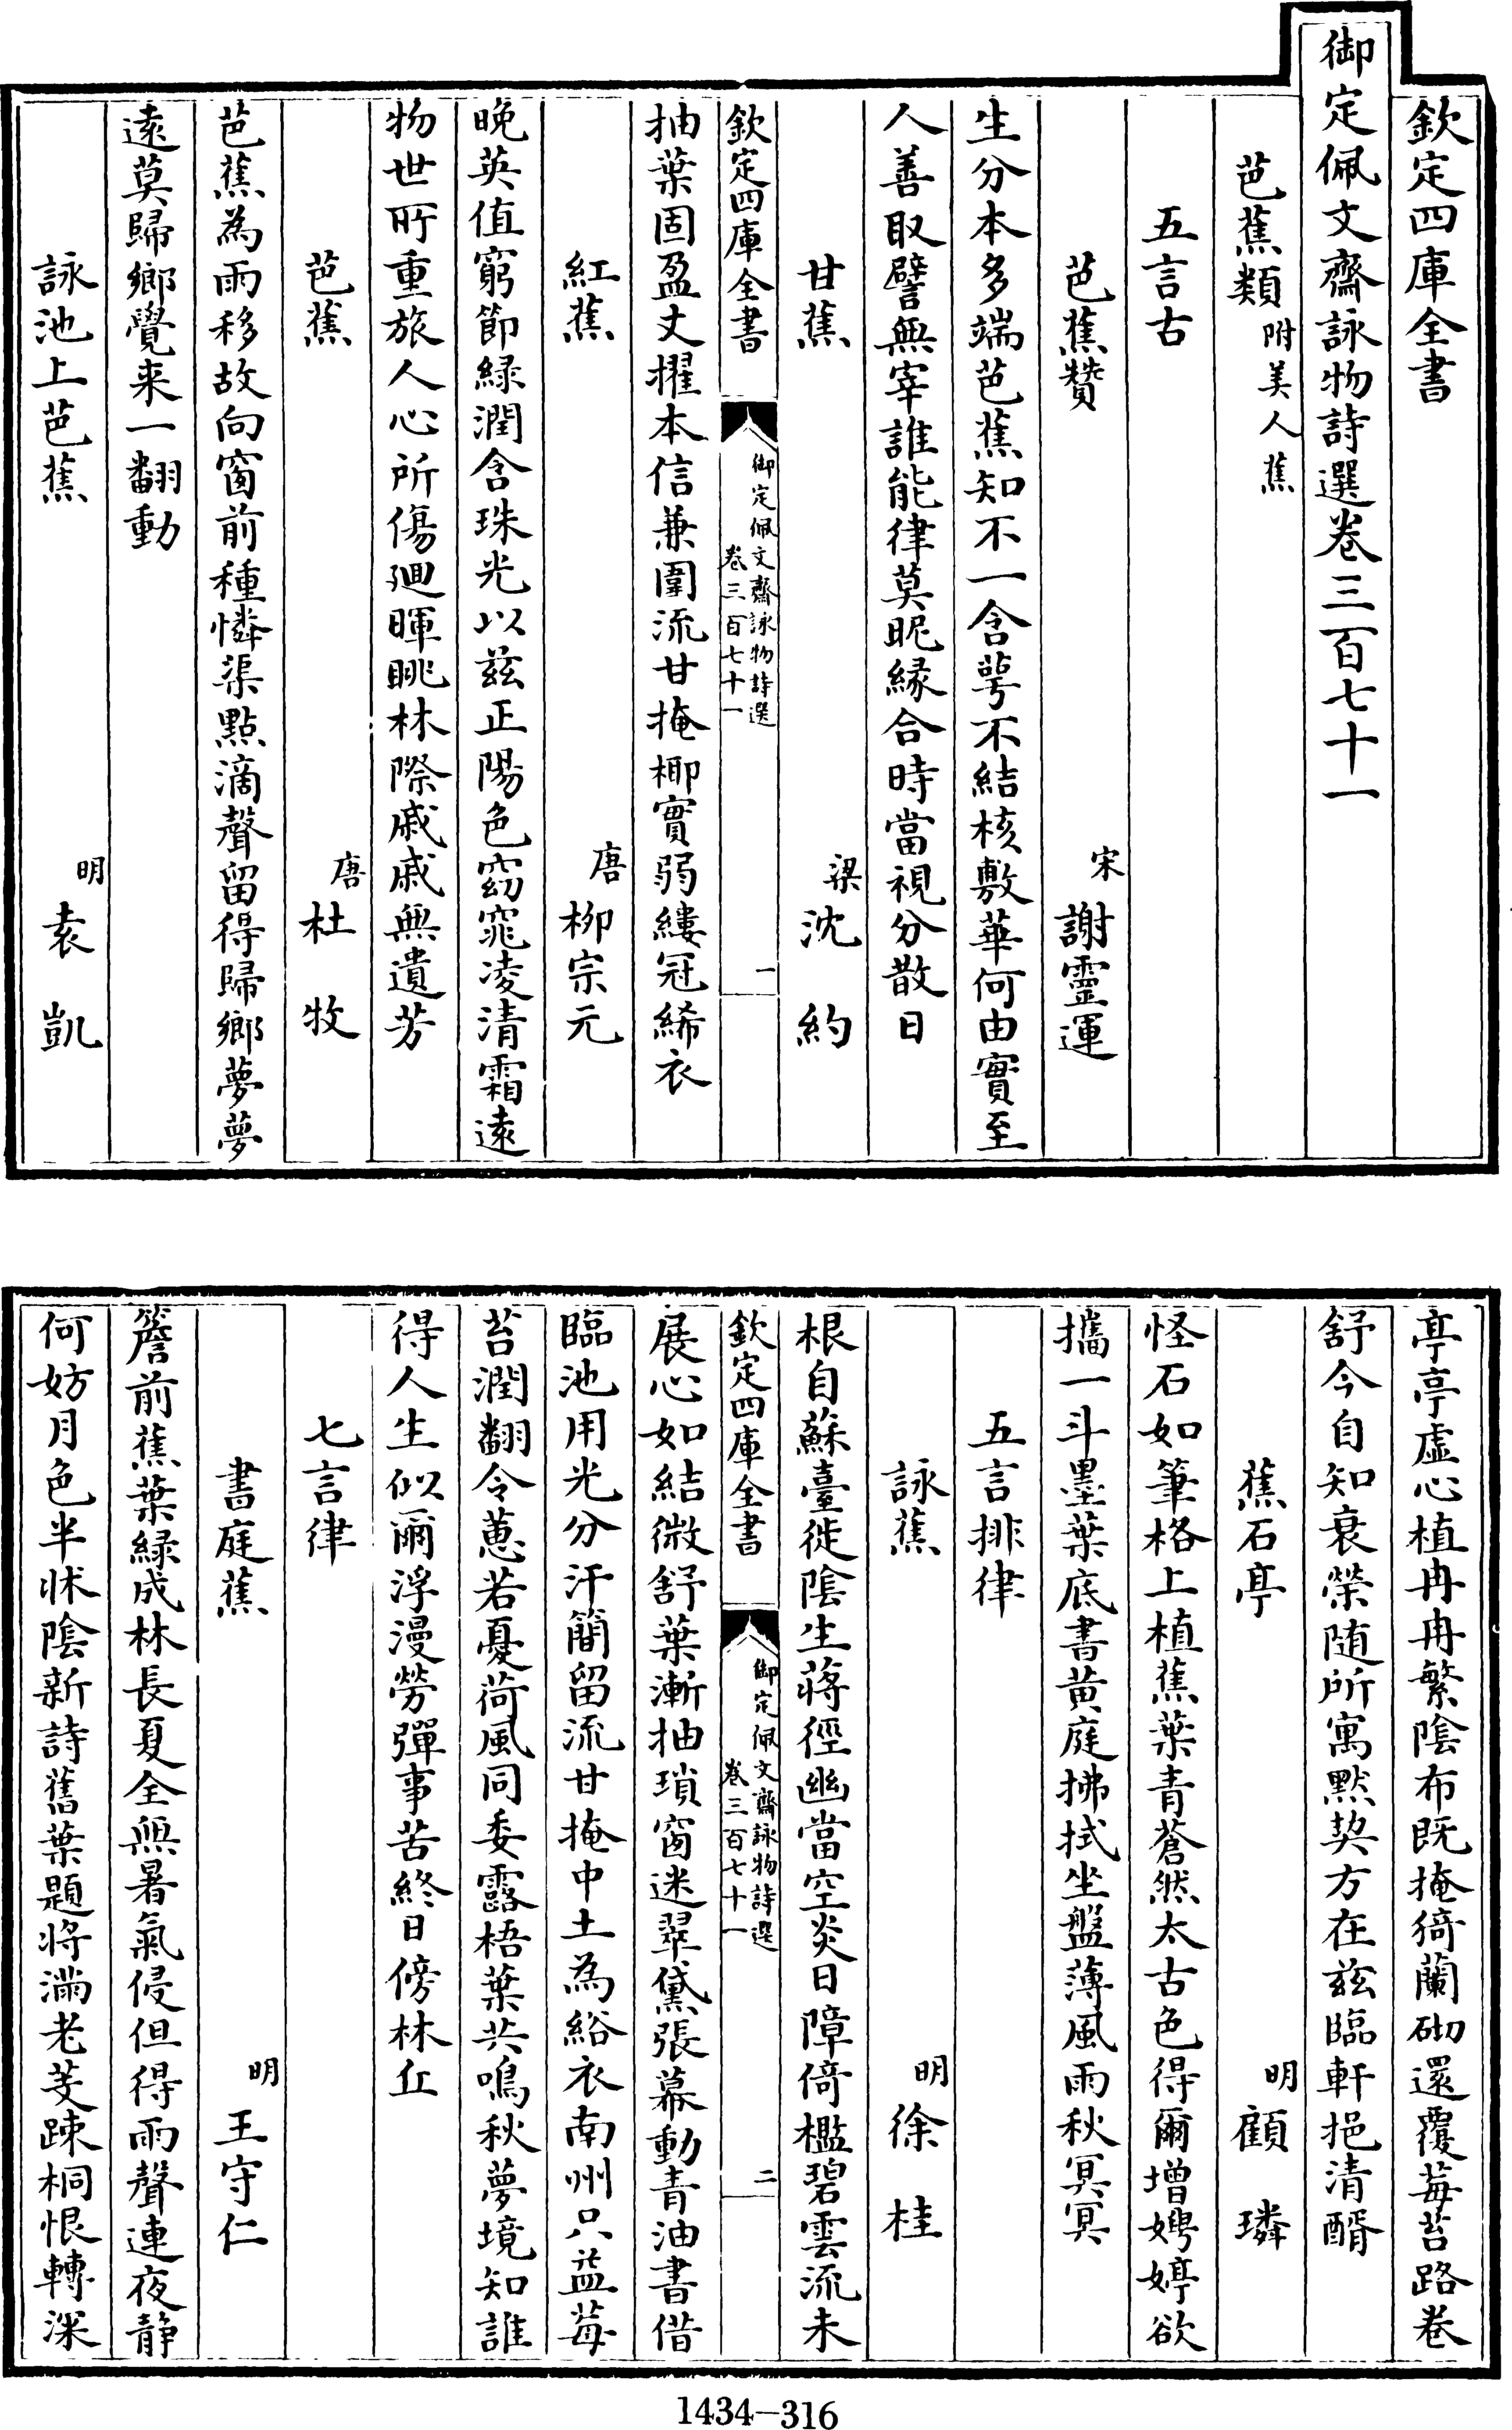 欽定四庫全書
御定佩文齋詠物詩選卷三百七十一
芭蕉類附美人蕉
五言古
芭蕉贊　宋　謝靈運
生分本多端芭蕉知不一含萼不結核敷華何由實至
人善取譬無宰誰能律莫昵緣合時當視分散日
甘蕉　梁　沈約
欽定四庫全書　御定佩文齋詠物詩選卷三百七十一　一
抽葉固盈丈擢本信兼圍流甘掩椰實弱縷冠絺衣
紅蕉　唐　柳宗元
晚英值窮節綠潤含珠光以兹正陽色窈窕凌清霜遠
物世所重旅人心所傷廻暉眺林際戚戚無遺芳
芭蕉　唐　杜牧
芭蕉為雨移故向窗前種憐渠點滴聲留得歸鄉夢夢
遠莫歸鄉覺来一翻動
詠池上芭蕉　明　袁凱
亭亭虛心植冉冉繁陰布既掩猗蘭砌還覆莓苔路卷
舒今自知衰榮随所寓默契方在兹臨軒挹清醑
蕉石亭　明　顧璘
怪石如筆格上植蕉葉青蒼然太古色得爾增娉婷欲
攜一斗墨葉底書黄庭拂拭坐盤薄風雨秋冥冥
五言排律
詠蕉　明　徐桂
根自蘇臺徙陰生蔣徑幽當空炎日障倚檻碧雲流未
欽定四庫全書　御定佩文齋詠物詩選卷三百七十一　二
展心如結微舒葉漸抽瑣窗迷翠黛張幕動青油書借
臨池用光分汗簡留流甘掩中土為綌衣南州只益莓
苔潤翻令蕙若憂荷風同委露梧葉共鳴秋夢境知誰
得人生似爾浮漫勞彈事苦終日傍林丘
七言律
書庭蕉　明　王守仁
簷前蕉葉綠成林長夏全無暑氣侵但得雨聲連夜静
何妨月色半牀陰新詩舊葉題将滿老芰踈桐恨轉深
1434—316